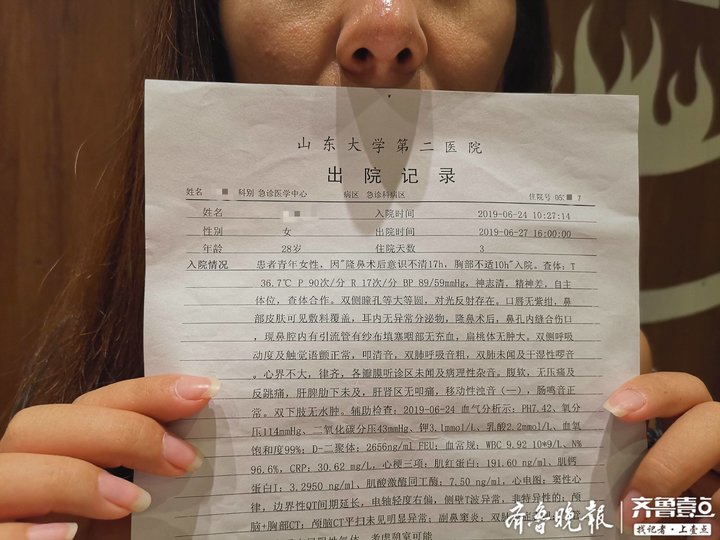 山东大学第二医院
出院记录
姓名 科别 急诊医学中心 病区 急诊科病区 住院号 05 7
姓名 入院时间 2019-06-24 10:27:14
性别 女 出院时间 2019-06-27 16:00:00
年龄 28岁 住院天数 3
入院情况 患者青年女性，因"隆鼻术后意识不清17h、胸部不适10h"入院。查体：T
36.7℃ P 90次/分 R 17次/分 BP 89/59mmHg，神志清，精神差，自主
体位，查体合作。双侧瞳孔等大等圆，对光反射存在。口唇无紫绀，鼻
部皮肤可见敷料覆盖，耳内无异常分泌物，隆鼻术后，鼻孔内缝合伤口
，现鼻腔内有引流管有纱布填塞咽部无充血，扁桃体无肿大。双侧呼吸
动度及触觉语颤正常，叩清音，双肺呼吸音粗，双肺未闻及干湿性啰音
。心界不大，律齐，各瓣膜听诊区未闻及病理性杂音。腹软，无压痛及
反跳痛，肝脾肋下未及，肝肾区无叩痛，移动性浊音（—），肠鸣音正
常。双下肢无水肿。辅助检查：2019-06-24 血气分析示：PH7.42、氧分
压114mmHg、二氧化碳分压43mmHg、钾3.1mmol/L、乳酸2.2mmol/L、血氧
饱和度99%；D-二聚体：2656ng/ml FEU；血常规：WBC 9.92 10*9/L、N%
96.6%，CRP：30.62 mg/L，心梗三项：肌红蛋白：191.60 ng/ml、肌钙
蛋白I：3.2950 ng/ml、肌酸激酶同工酶：7.50 ng/ml，心电图：窦性心
律，边界性QT间期延长，电轴轻度右偏，侧壁T波异常，非特异性的；颅
脑+胸部CT：颅脑CT平扫未见明显异常；副鼻窦炎；双肺
气体，考虑憩室可能
齐鲁晚报
齐鲁壹点
找记者·上壹点